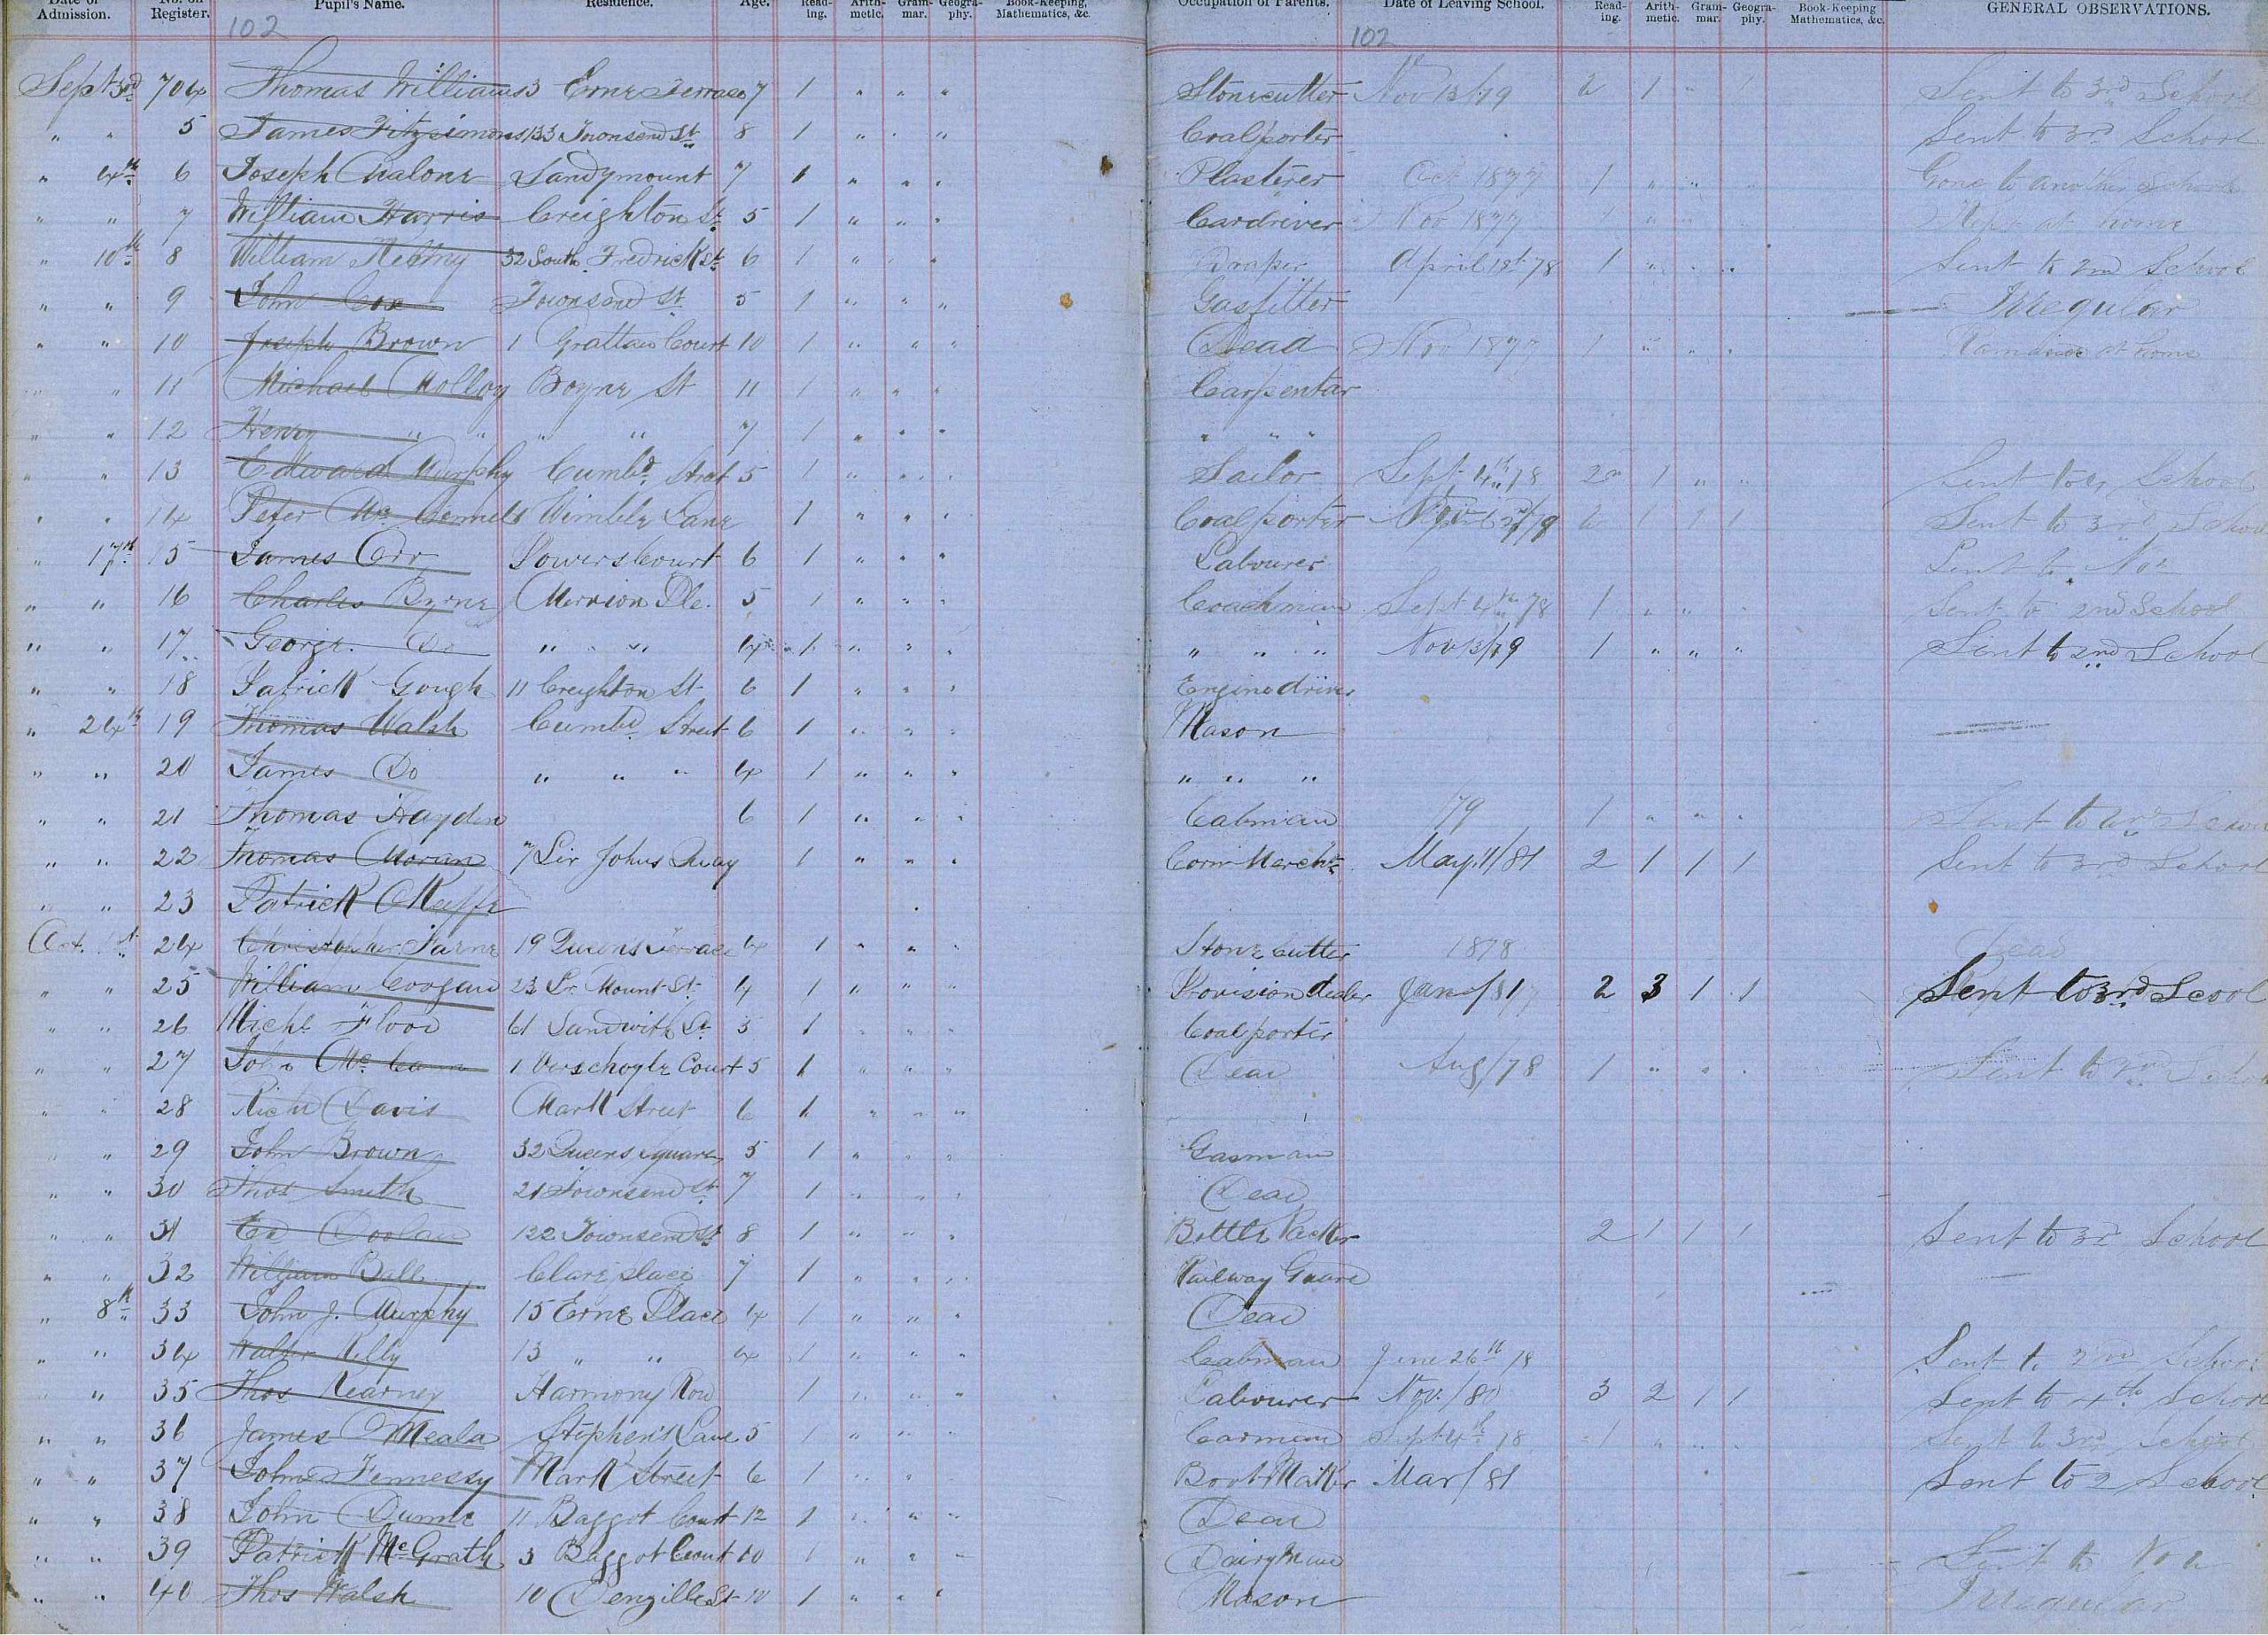 Date of Admission. No. on Register. Pupil's Name. Residence. Age. Reading. Arithmetic. Grammar. Geography. Book-Keeping, Mathematics, &c. Occupation of Parents. Date of Leaving School. Reading. Arithmetic. Grammar. Geography. Book-Keeping Mathematics, &c. GENERAL OBSERVATIONS.
102 102
Sept 3rd 704 Thomas Williams 3 Erne Terrace 7 1 " " " Stonecutter Nov 13/79 2 1 " 1 Sent to 3rd School
" " 5 James Fitzsimons 133 Townsend St 8 1 " " " Coalporter Sent to 3rd School
" 4th 6 Joseph Malone Sandymount 7 1 " " " Plasterer Oct 1877 1 " " Gone to another School
" " 7 William Harris Creighton St 5 1 " " " Cardriver Nov 1877 1 " " at home
" 10th 8 William 32 South Fredrick St 6 1 " " " Draper April 1st 78 1 " " " Sent to 2nd School
" " 9 John Cox Townsend St 5 1 " " " Gasfitter Irregular
" " 10 Joseph Brown 1 Grattan Court 10 1 " " " Dead Nov 1877 1 " " " at home
" " 11 Michael Molloy Boyne St 11 1 " " " Carpentar
" " 12 Henry " " " " 7 1 " " " " " "
" " 13 Edward Murphy Cumbd. Street 5 1 " " " Sailor Sept 4th 78 2 1 " " Sent to School
" " 14 Peter Mc Connell Wimble Lane 1 " " " Coalporter 2 1 1 1 Sent to 3rd School
" 17th 15 James Orr Powers Court 6 1 " " " Labourer Sent to No 2
" " 16 Charles Byrne Merrion Ple. 5 1 " " " Coachman Sept 4th 78 1 " " " Sent to 2nd School
" " 17 George Do " " 4 1 " " " " " " Nov 13/79 1 " " " Sent to 2nd School
" " 18 Patrick Gough 11 Creighton St 6 1 " " " Enginedriver
" 24th 19 Thomas Walsh Cumbd Street 6 1 " " " Mason
" " 20 James Do " " " 4 1 " " " " " "
" " 21 Thomas Hayden 6 1 " " " Cabman 79 1 " " " Sent to School
" " 22 Thomas Moran 7 Sir Johns Quay 1 " " " Corn Mercht. May 11/81 2 1 1 1 Sent to 3rd School
" " 23 Patrick Keiffe
Oct. 1st 24 Christopher 19 Queens Terrace 4 1 " " " Stone Cutter 1878 Dead
" " 25 William Coogan 23 Lr. Mount St. 4 1 " " " Provision dealer Jan /81 2 3 1 1 Sent to 3rd Scool
" " 26 Michl. Flood 61 Sandwith St 5 1 " " " Coalporter
" " 27 John Mc Cann 1 Verschoyle Court 5 1 " " " Dead Aug/78 1 " " " Sent to 2nd School
" " 28 Richd Davis Mark Street 6 1 " " "
" " 29 John Brown 32 Queens Square 5 1 " " " Gasman
" " 30 Thos Smith 21 Townsend St 7 1 " " " Dead
" " 31 Ed Doolan 122 Townsend St 8 1 " " " Bottle Packer 2 1 1 1 Sent to 3rd School
" " 32 William Ball Clare place 7 1 " " " Railway Guard
" 8th 33 John J. Murphy 15 Erne Place 4 1 " " " Dead
" " 34 Walter Kelly 13 " " 4 1 " " " Cabman June 26th 78 Sent to 2nd School
" " 35 Thos Kearney Harmony Row 1 " " " Labourer Nov./80 3 2 1 1 Sent to 4th School
" " 36 James Meala Stephens Lane 5 1 " " " Carman Sept 4th 78 1 " " " Sent to 3rd School
" " 37 John Fennessy Mark Street 6 1 " " Boot Maker Mar/81 Sent to 2 School
" " 38 John Dunne 11 Baggot Court 12 1 " " " Dead
" " 39 Patrick McGrath 3 Baggot Court 10 1 " " " Dairyman Sent to No 2
" " 40 Thos Walsh 10 Denzille St 10 1 " " " Mason Irregular